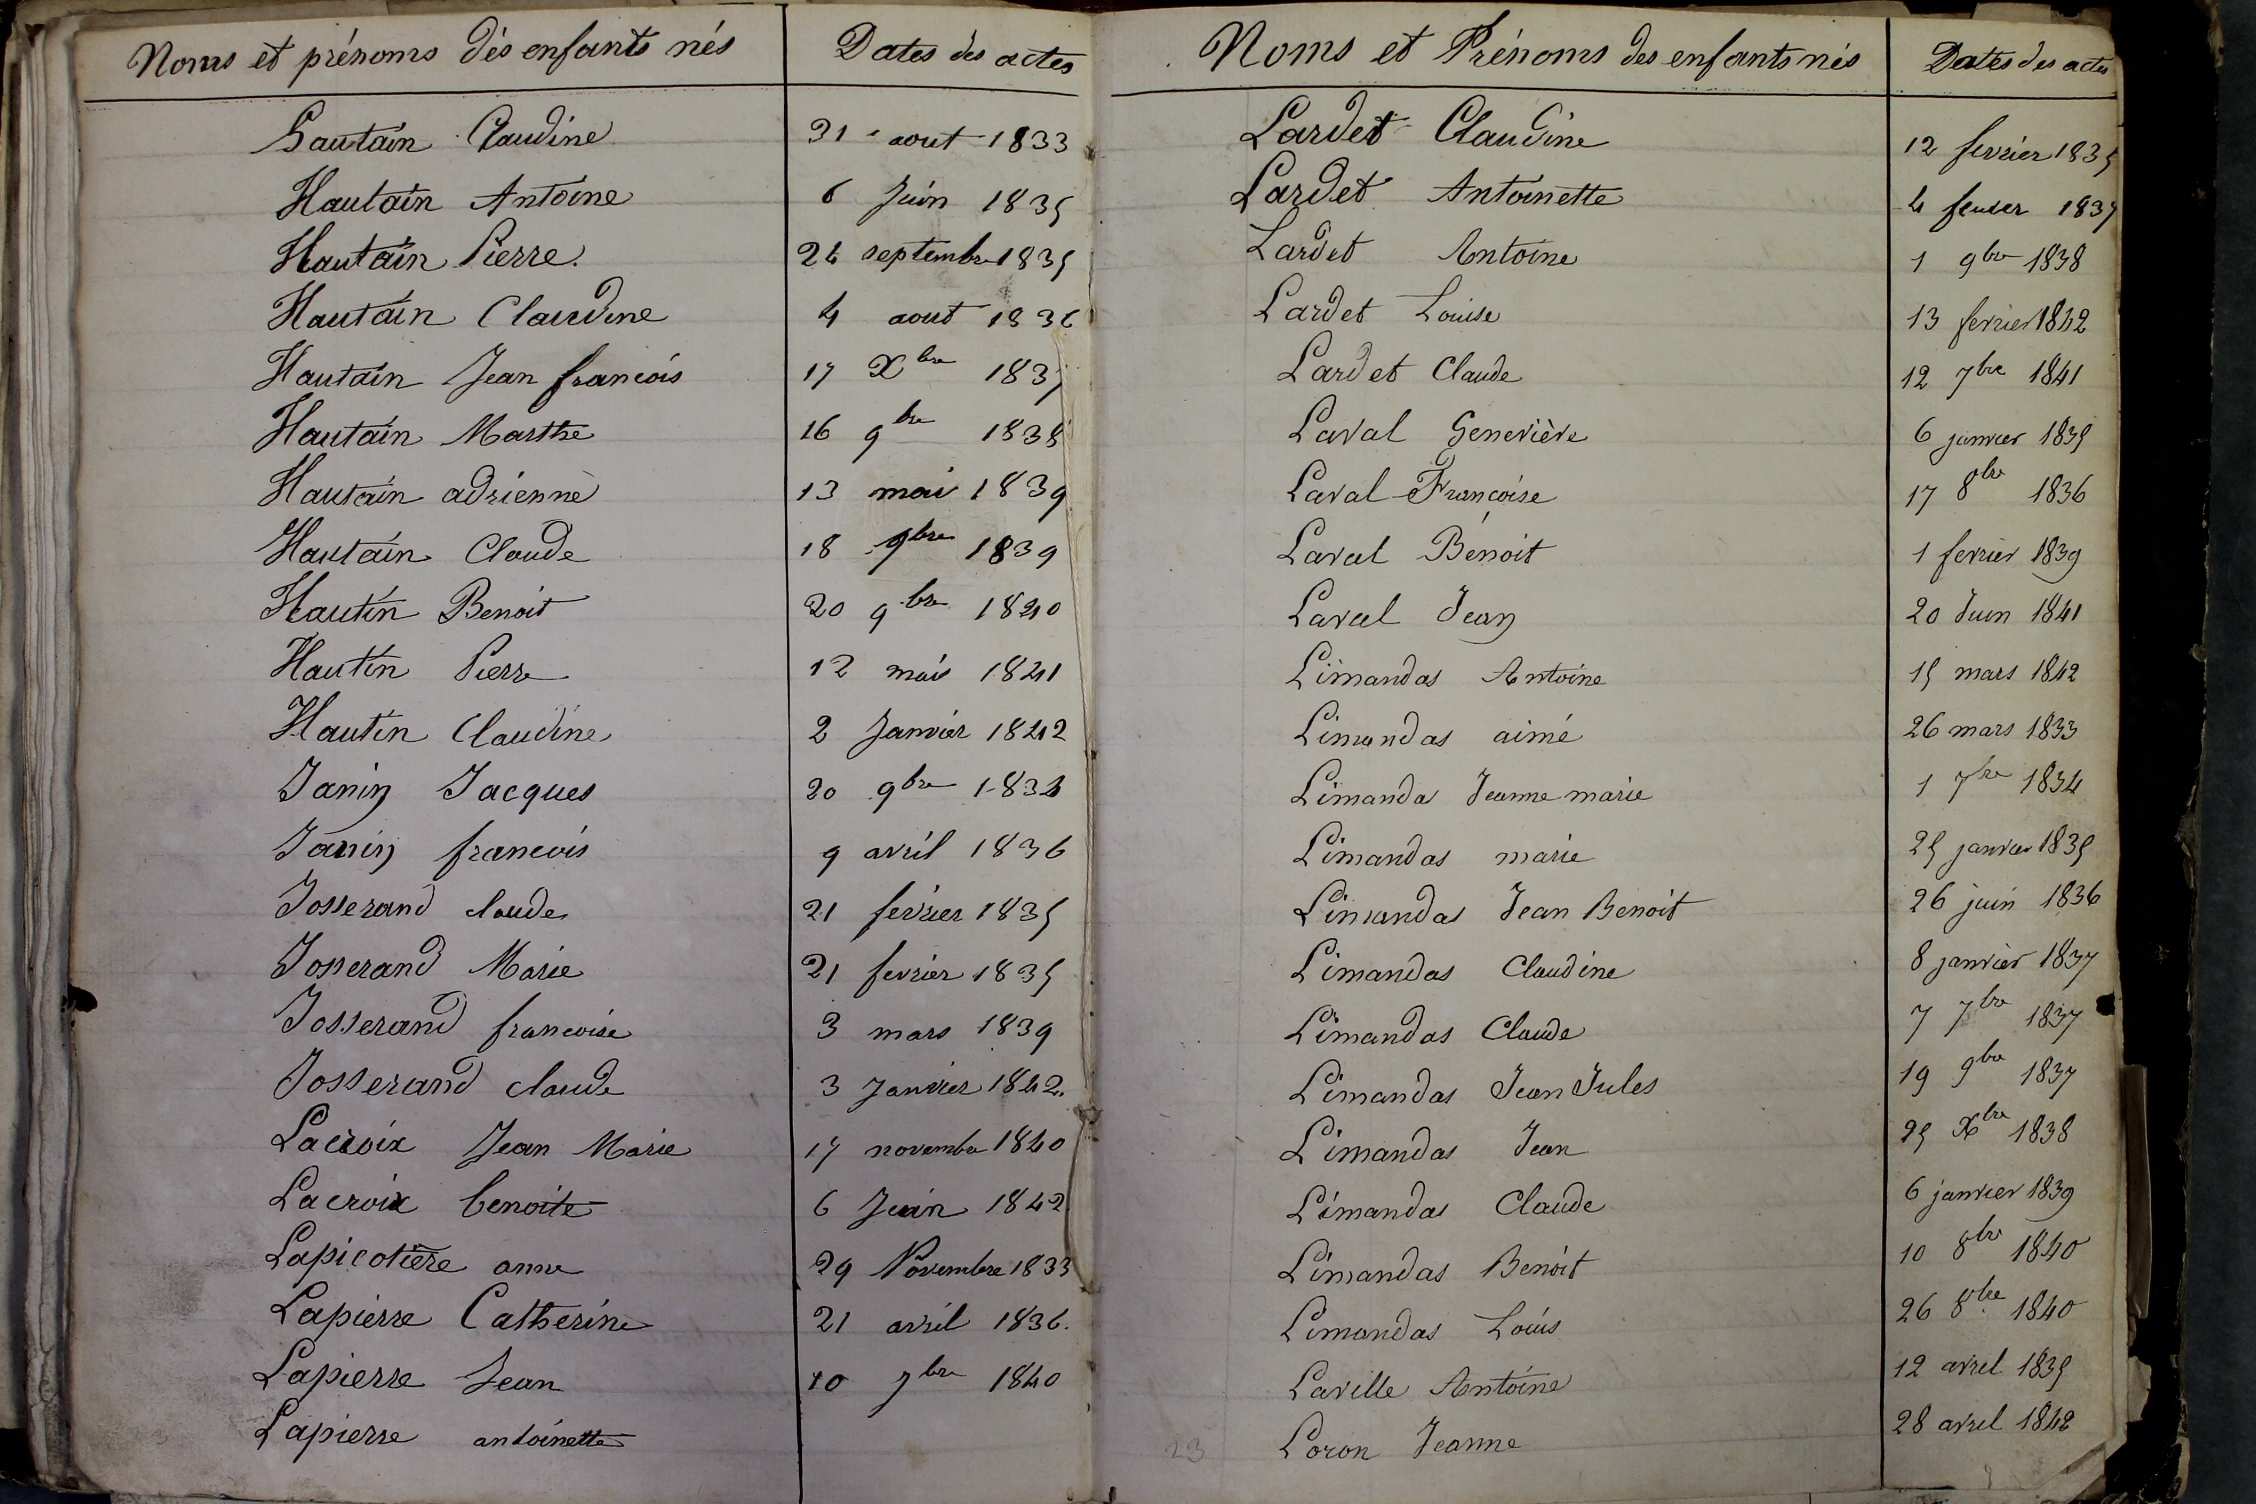 Noms et prénoms dès enfants nés Dates des actes
Hautain Claudine 31 aout 1833
Hautain Antoine 6 Juin 1835
Hautain Pierre. 24 septembre 1835
Hautain Claudine 4 aout 1836
Hautain Jean francois 17 Xbre 1837
Hautain Marthe 16 9bre 1838
Hautain adrienne 13 mai 1839
Hautain Claude 18 9bre 1839
Hautin Benoit 20 9bre 1840
Hautin Pierre 12 mais 1841
Hautin Claudine 2 Janvier 1842
Janin Jacques 20 9bre 1834
Janin francois 9 avril 1836
Josserand claude 21 février 1835
Josserand Marie 21 fevrier 1835
Josserand francoise 3 mars 1839
Josserand claude 3 Janvier 1842.
Lacroix Jean Marie 17 novembre 1840
Lacroix benoite 6 Juin 1842
Lapicotière anne 29 Novembre 1833
Lapierre Catherine 21 avril 1836.
Lapierre Jean 10 7bre 1840
Lapierre antoinette
Noms et Prénoms des enfants nés Dates des actes
Lardet Claudine 12 fevrier 1835
Lardet Antoinette 4 fevrier 1837
Lardet Antoine 1 9bre 1838
Lardet Louise 13 fevrier 1842
Lardet Claude 12 7bre 1841
Laval Genevière 6 janvier 1835
Laval Françoise 17 8bre 1836
Laval Bénoit 1 fevrier 1839
Laval Jean 20 Juin 1841
Limandas Antoine 15 mars 1842
Limandas aimé 26 mars 1833
Limanda Jeanne marie 1 7bre 1834
Limandas marie 25 janvier 1835
Limandas Jean Benoit 26 juin 1836
Limandas Claudine 8 janvier 1837
Limandas Claude 7 7bre 1837
Limandas Jean Jules 19 9bre 1837
Limandas Jean 25 Xbre 1838
Limandas Claude 6 janvier 1839
Limandas Benoit 10 8bre 1840
Limandas Louis 26 8bre 1840
Laville Antoine 12 avril 1835
Loron Jeanne 28 avril 1842
23